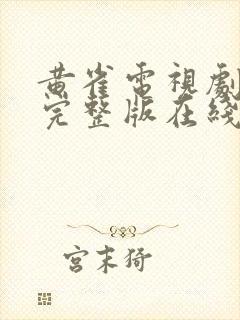 黄雀電視劇
完整版在綫
宮末猗